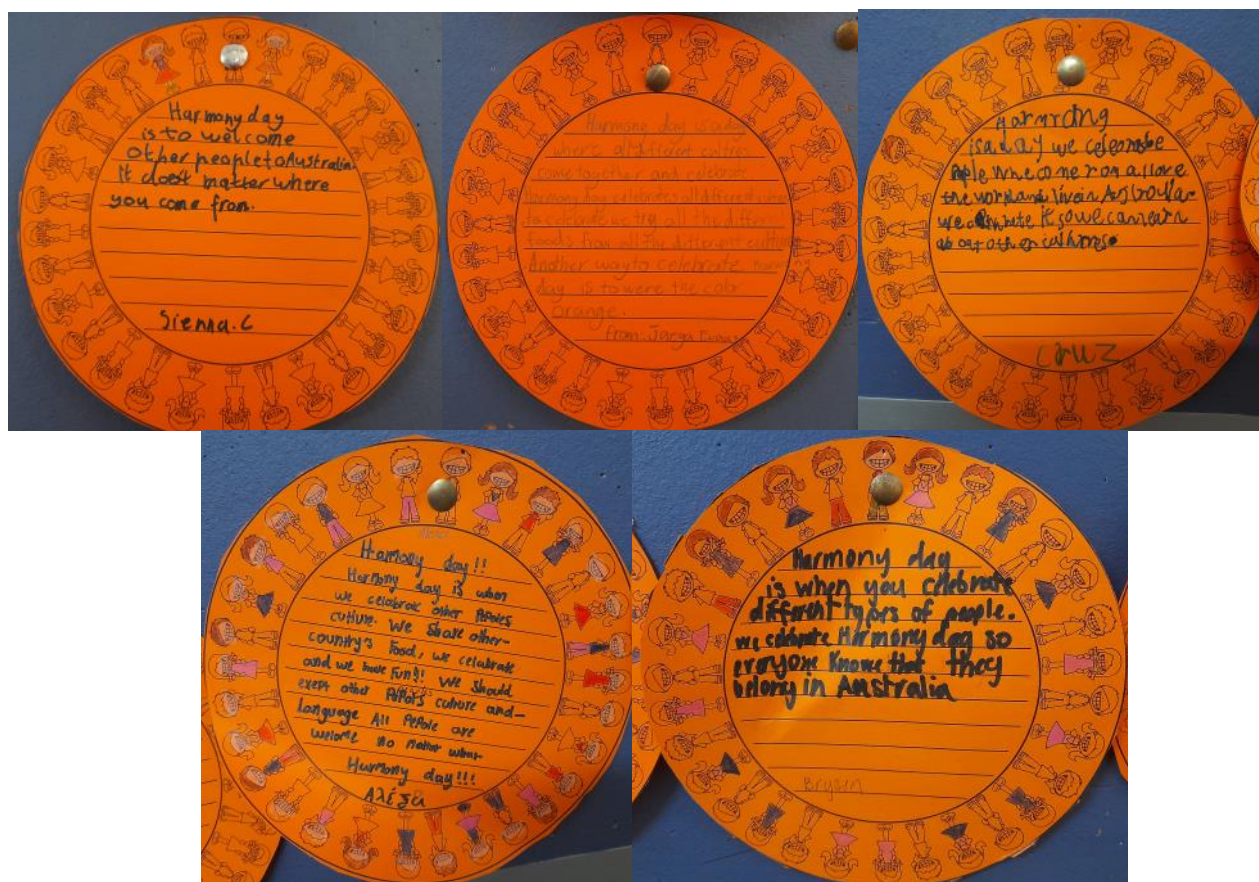 Harmony day
is to welcome
Other people to Australia.
It doest matter where
you come from.
Sienna.C
Harmony day is a day
where all different cultres
come together and celebrate
Harmony day celebrates all different
to celebrate we try all the differen
foods from all the different culture
Another way to celebrate harmony
day is to were the color
orange.
From: Jaega
is a day we
the world and live in
we so we can
about other cultures.
Cruz
Harmony day!!
Harmony day is when
we celebrate other Peples
culture. We share other-
country's food, we celebrate
and we have fun!! We should
exept other culture and-
Language All Pepole are
welcome no matter what
Harmony day!!!
Αλέξα
Harmony day
is when you celebrate
different types of people.
we celebrate Harmony day so
everyone Knows that they
belong in Australia
Brysen